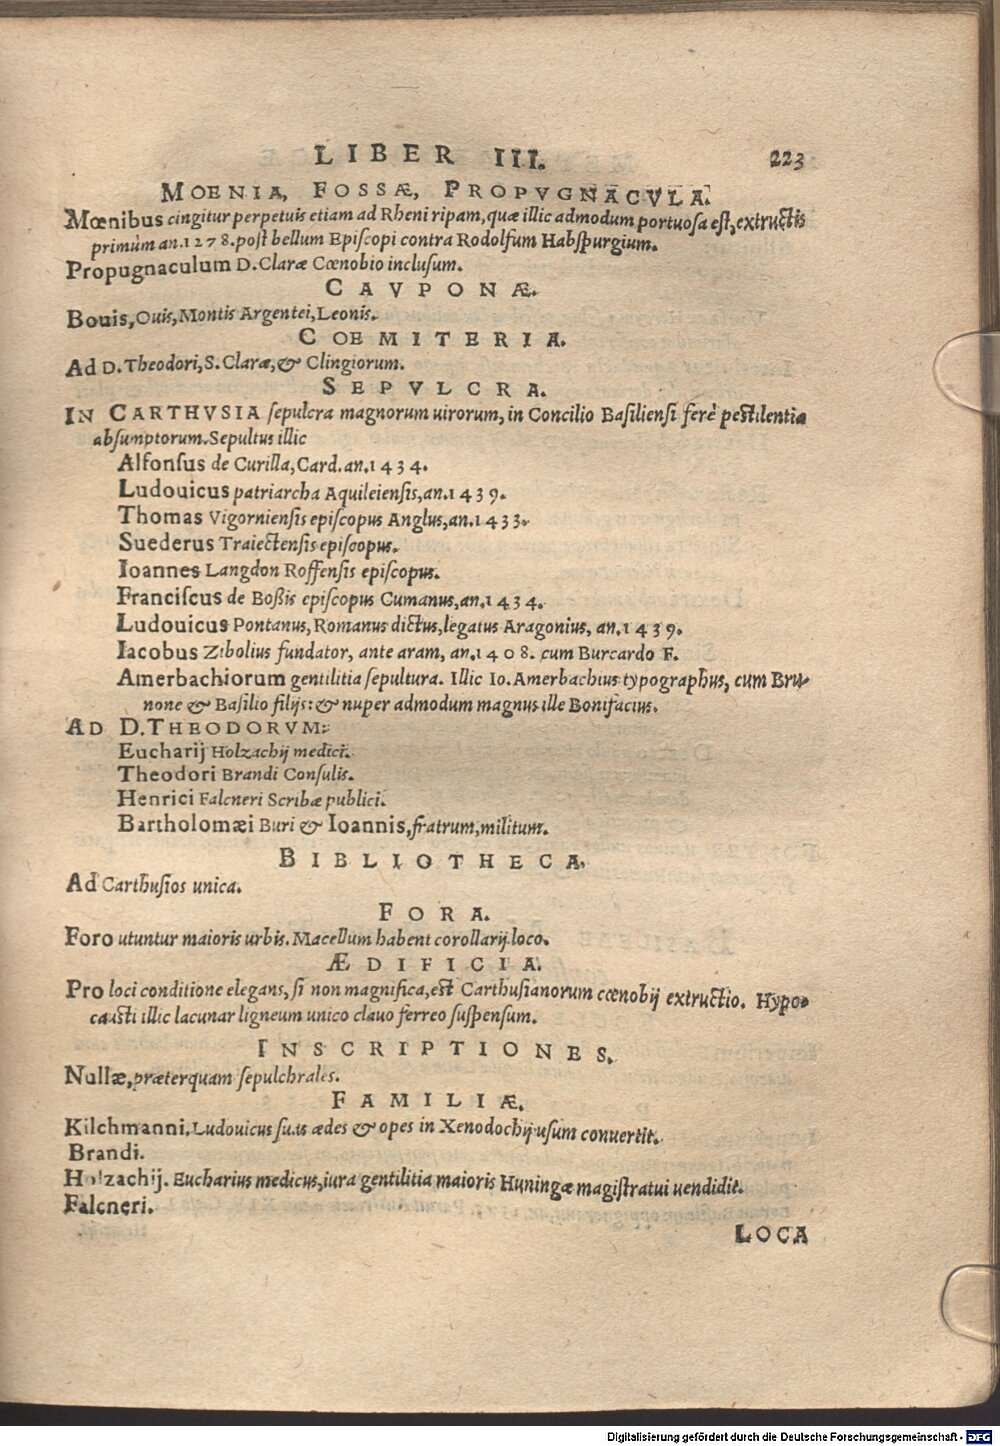 LIBER III. 223
MOENIA, FOSSÆ, PROPVGNACVLA.
Mœnibus cingitur perpetuis etiam ad Rheni ripam, quæ illic admodum portuosa est, extructis
primùm an.1278. post bellum Episcopi contra Rodolfum Habspurgium.
Propugnaculum D. Claræ Cœnobio inclusum.
CAVPONÆ.
Bouis, Ouis, Montis Argentei, Leonis.
COEMITERIA.
Ad D. Theodori, S. Claræ, & Clingiorum.
SEPVLCRA.
IN CARTHVSIA sepulcra magnorum uirorum, in Concilio Basiliensi ferè pestilentia
absumptorum. Sepultus illic
Alfonsus de Curilla, Card. an.1434.
Ludouicus patriarcha Aquileiensis, an.1439.
Thomas Vigorniensis episcopus Anglus, an.1433.
Suederus Traiectensis episcopus.
Ioannes Langdon Roffensis episcopus.
Franciscus de Boßis episcopus Cumanus, an.1434.
Ludouicus Pontanus, Romanus dictus, legatus Aragonius, an.1439.
Iacobus Zibolius fundator, ante aram, an.1408. cum Burcardo F.
Amerbachiorum gentilitia sepultura. Illic Io. Amerbachius typographus, cum Bru-
none & Basilio filijs: & nuper admodum magnus ille Bonifacius.
AD D. THEODORVM:
Eucharij Holzachij medici.
Theodori Brandi Consulis.
Henrici Falcneri Scribæ publici.
Bartholomæi Buri & Ioannis, fratrum, militum.
BIBLIOTHECA.
Ad Carthusios unica.
FORA.
Foro utuntur maioris urbis. Macellum habent corollarij loco.
ÆDIFICIA.
Pro loci conditione elegans, si non magnifica, est Carthusianorum cœnobij extructio. Hypo-
causti illic lacunar ligneum unico clauo ferreo suspensum.
INSCRIPTIONES.
Nullæ, præterquam sepulchrales.
FAMILIÆ.
Kilchmanni. Ludouicus suas ædes & opes in Xenodochij usum conuertit.
Brandi.
Holzachij. Eucharius medicus, iura gentilitia maioris Huningæ magistratui uendidit.
Falcneri.
LOCA
Digitalisierung gefördert durch die Deutsche Forschungsgemeinschaft - DFG